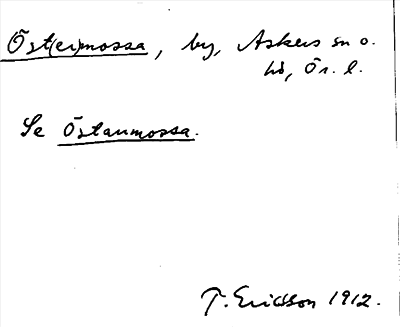 Öst(er)mossa, by, Askers sn o.
hd, Ör. l.
Se Östanmossa.
T. Ericsson 1912.